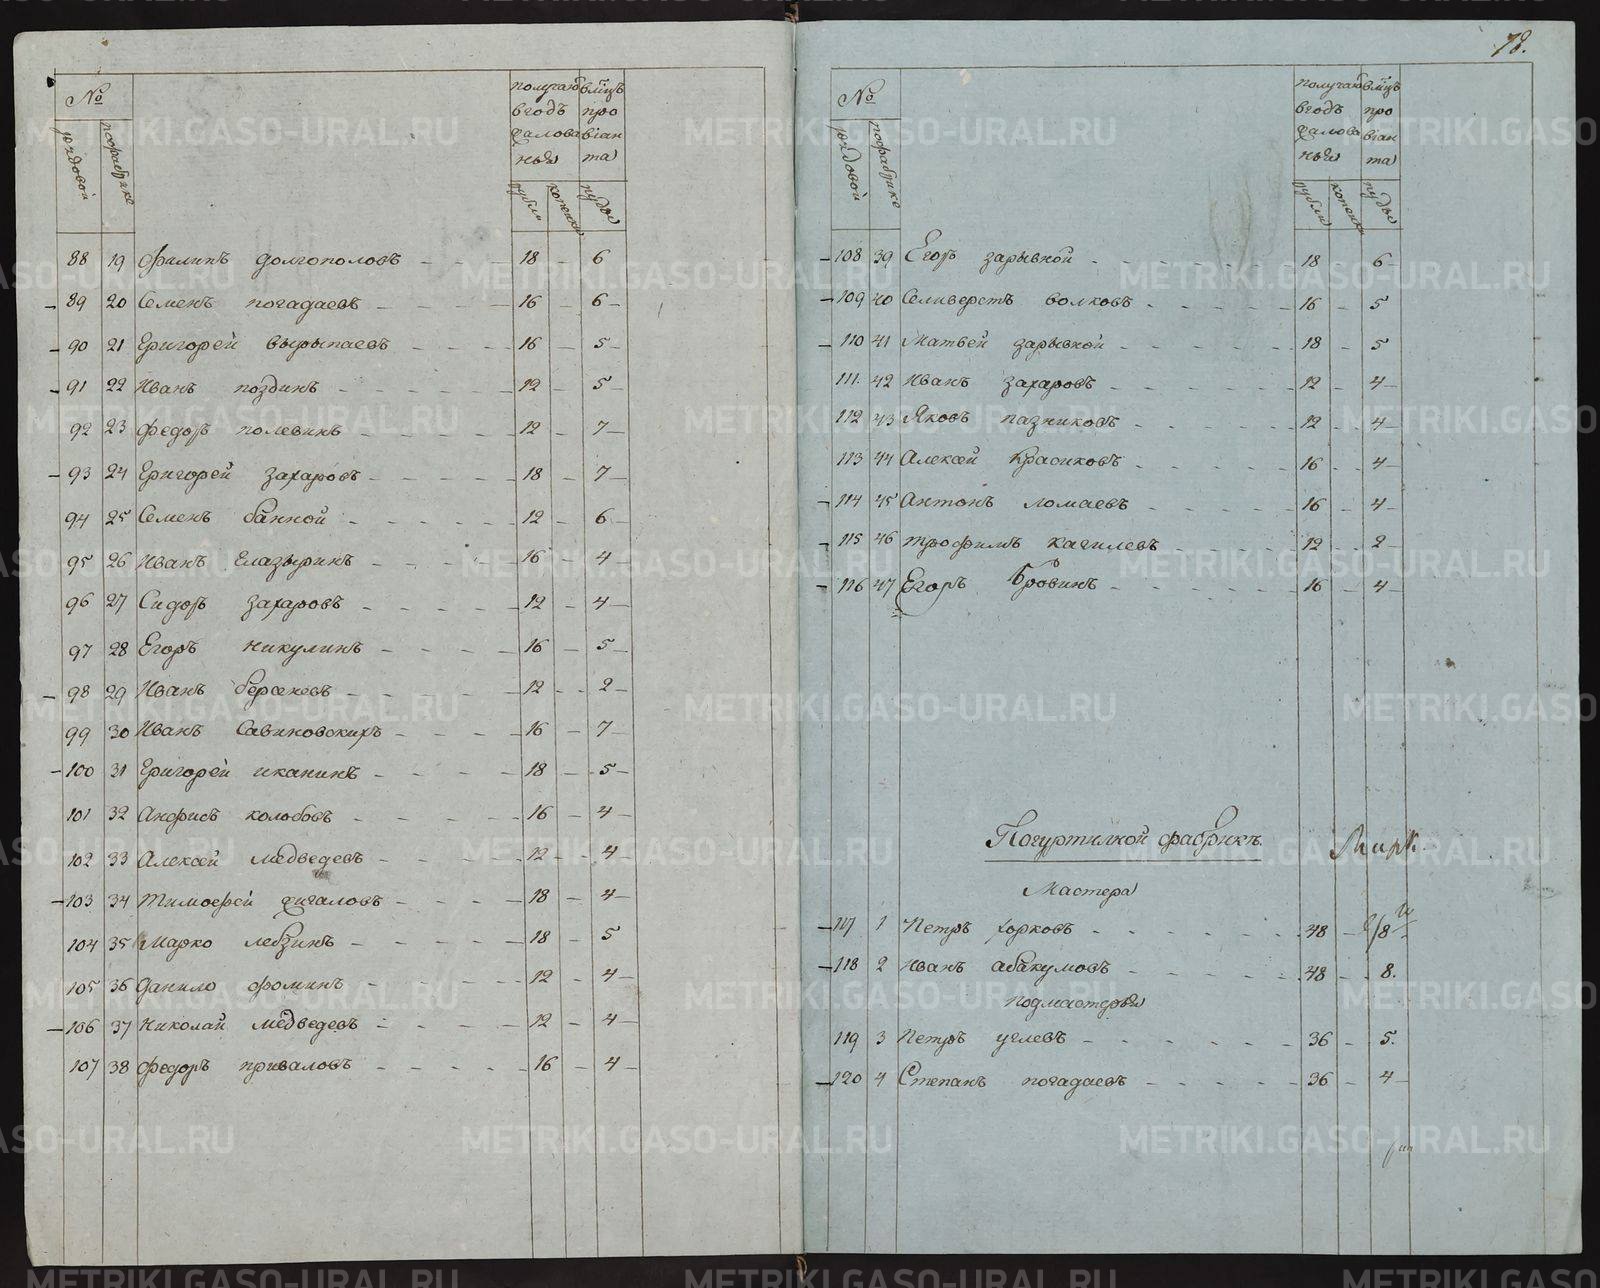 78.
№
рядовой
пофабрике
получаю
вгодъ
жалова
нья
рубли
копейки
вмцъ
про
віан
та
пуды
88 19 Филипъ долгополовъ 18 6
89 20 Семенъ погадаевъ 16 6
90 21 Григорей вырыпаевъ 16 5
91 22 Иванъ поздинъ 12 5
92 23 Федоръ полевинъ 12 7
93 24 Григорей захаровъ 18 7
94 25 Семенъ банной 12 6
95 26 Иванъ Глазыринъ 16 4
96 27 Сидоръ захаровъ 12 4
97 28 Егоръ никулинъ 16 5
98 29 Иванъ 12 2
99 30 Иванъ Савиновскихъ 16 7
100 31 Григорей иканинъ 18 5
101 32 колобовъ 16 4
102 33 Алексей медведевъ 12 4
103 34 Тимофей жигаловъ 18 4
104 35 Марко лебзинъ 18 5
105 36 данило фоминъ 12 4
106 37 Николай медведевъ 12 4
107 38 Федоръ приваловъ 16 4
№
рядовой
пофабрике
получаю
вгодъ
жалова
нья
рубли
копейки
вмцъ
про
віан
та
пуды
108 39 Егоръ зарывной 18 6
109 40 Селиверстъ волковъ 16 5
110 41 Матвей зарывной 18 5
111. 42 Иванъ захаровъ 12 4
112 43 Яковъ пазниковъ 12 4
113 44 Алексей Красиковъ 16 4
114 45 Антонъ ломаевъ 16 4
115 46 трофимъ качилевъ 12 2
116 47 Егоръ Бровинъ 16 4
фабрикъ.
Мастера
117 1 Петръ хорковъ 48 8
118 2 Иванъ абакумовъ 48 8.
подмастерья
119 3 Петръ углевъ 36 5.
120 4 Степанъ погадаевъ 36 4
METRIKI.GASO-URAL.RU